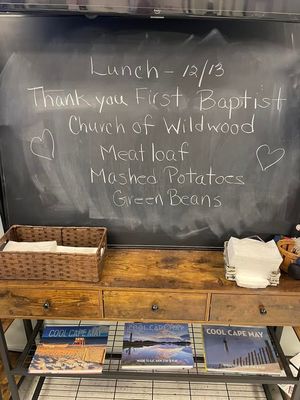 Lunch - 12/13
Thank you First Baptist
Church of Wildwood
Meatloaf
Mashed Potatoes
Green Beans
COOL CAPE MAY
COOL CAPE MAY
COOL CAPE MAY